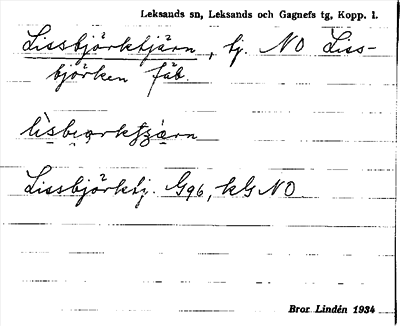 Leksands sn, Leksands och Gagnefs tg, Kopp. l.
Lissbjörktjärn, tj. NO Liss-
björken fäb.
Lissbjörktj. G96, kG NO
Bror Lindén 1934